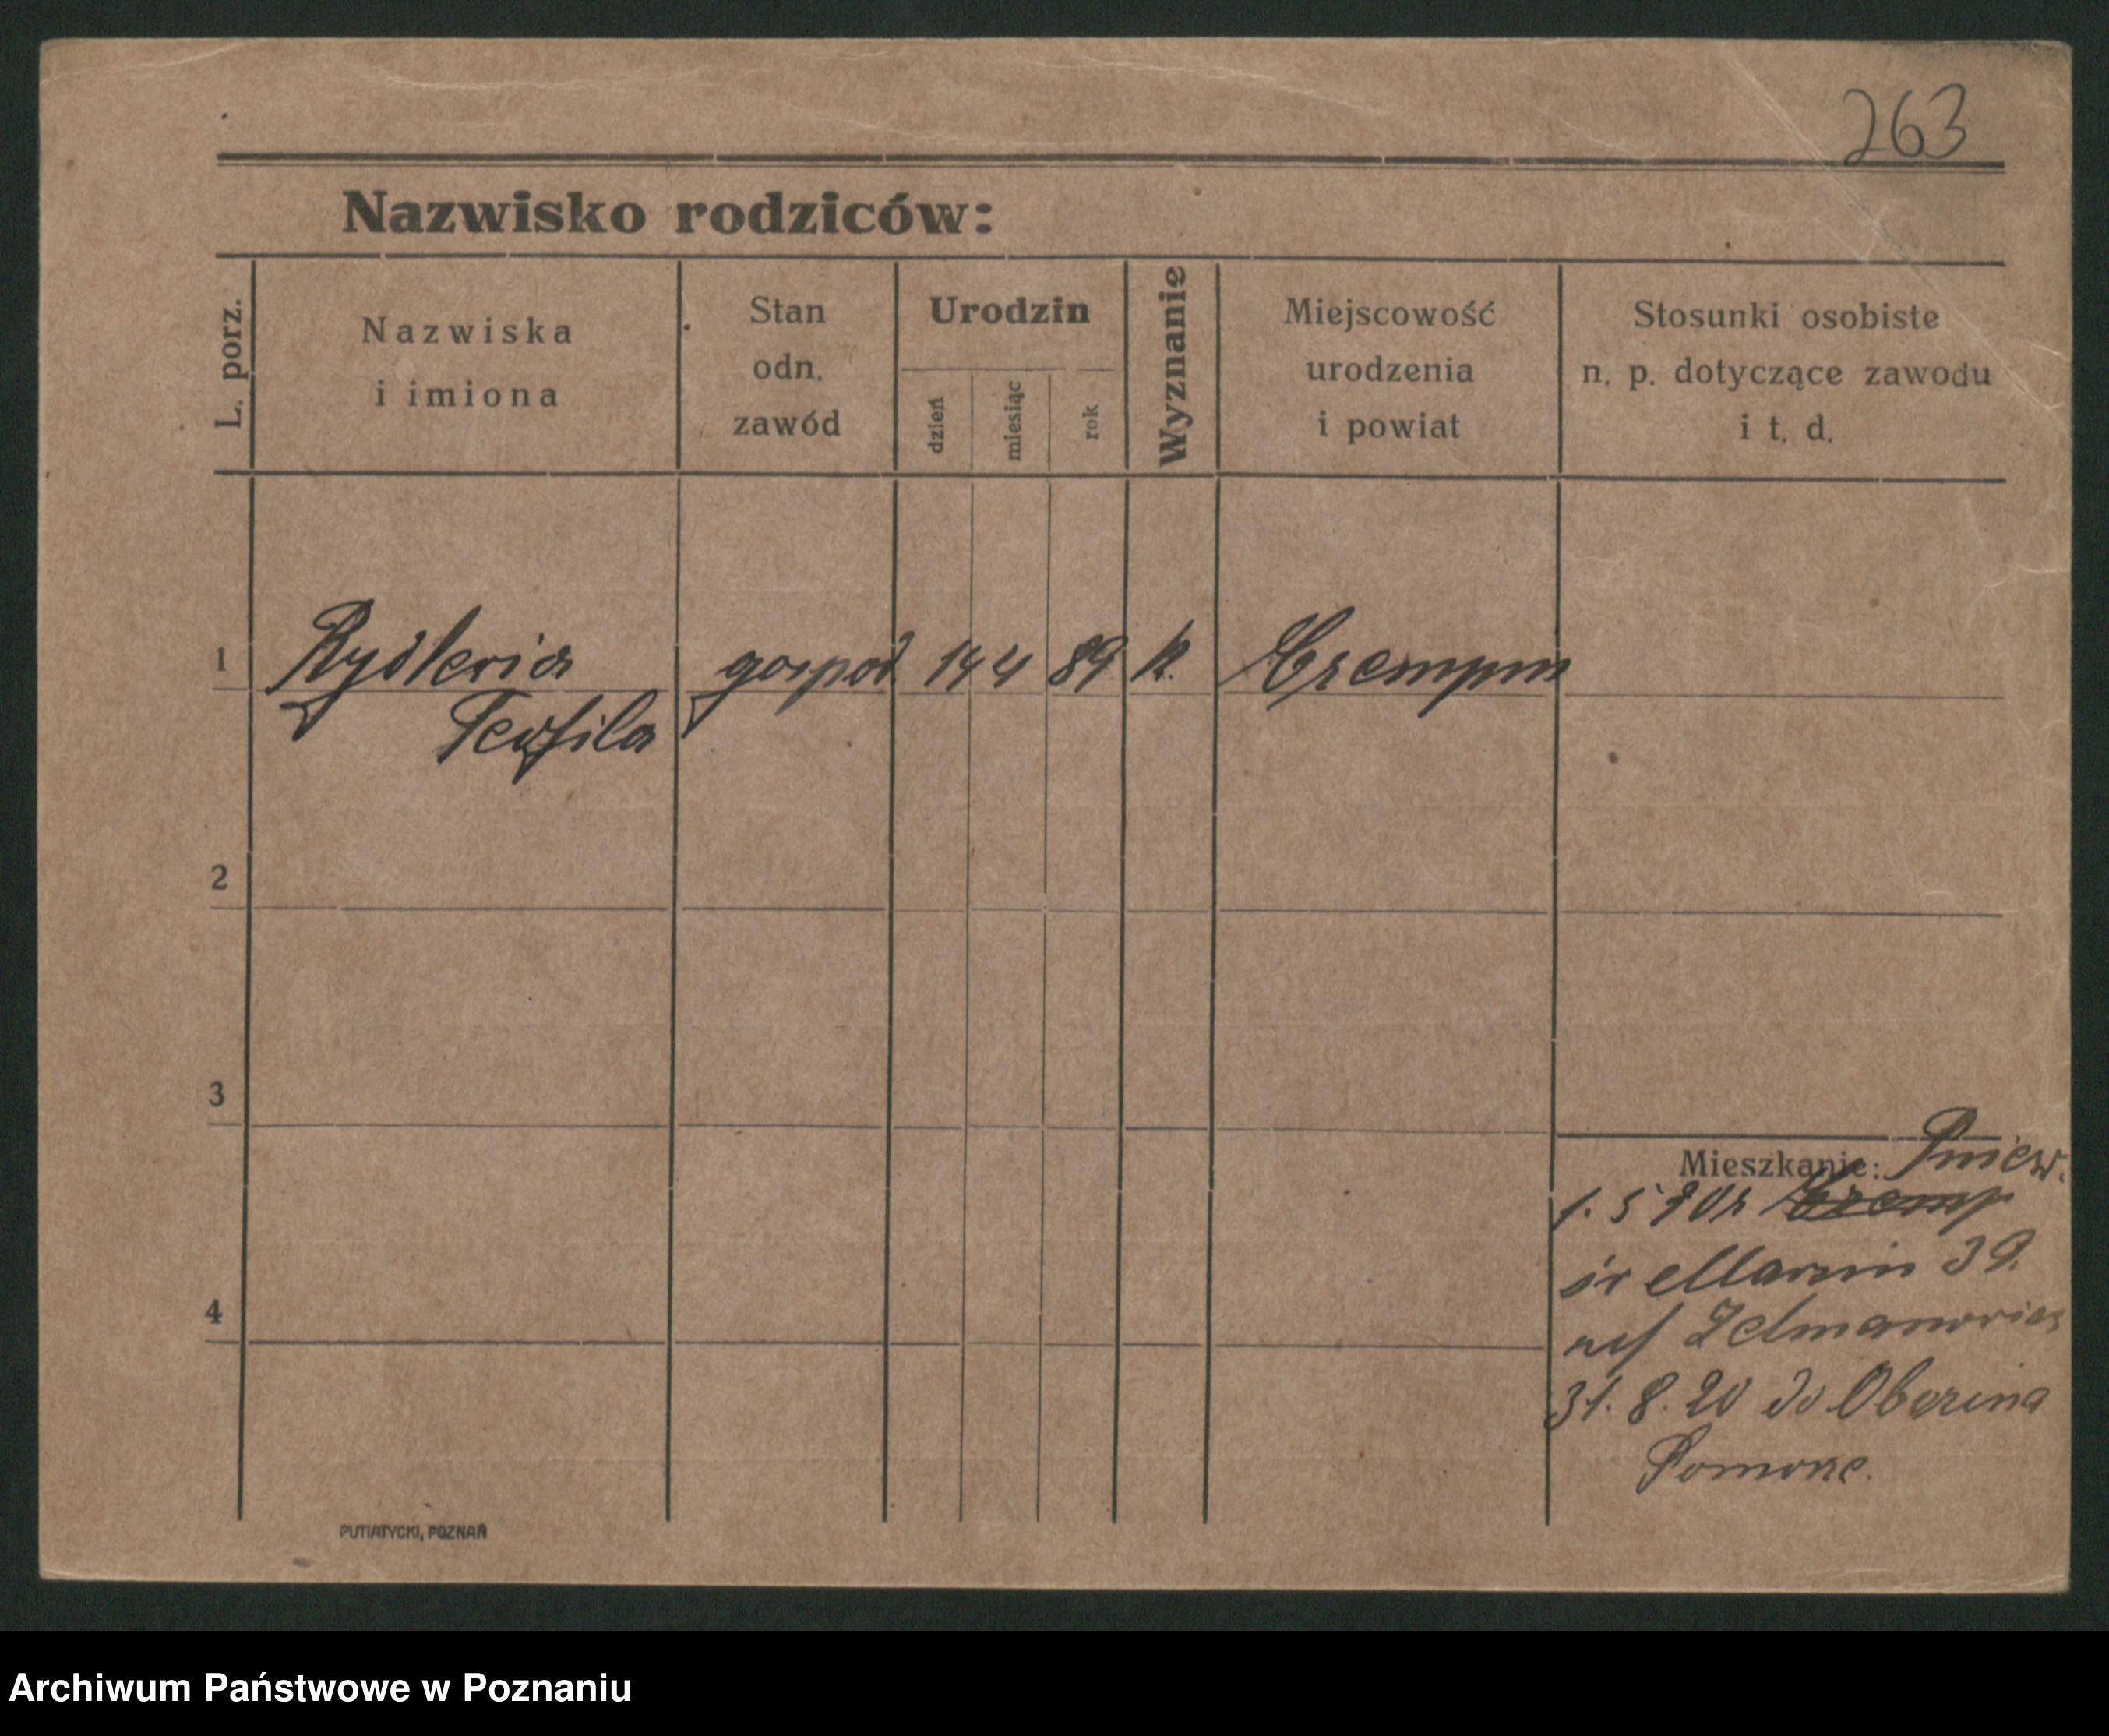 263
Nazwisko rodziców:
L. porz.
Nazwiska
i imiona
Stan
odn.
zawód
Urodzin
dzień
miesiąc
rok
Wyznanie
Miejscowość
urodzenia
i powiat
Stosunki osobiste
n. p. dotyczące zawodu
i t. d.
1 gospod 14 4 89 k. Czempin
Teofila
2
3
Mieszkanie: Pniew.
Czemp
św Marcin 39.
4
31. 8. 20 do
Pomorze.
PUTIATYCKI, POZNAŃ
Archiwum Państwowe w Poznaniu